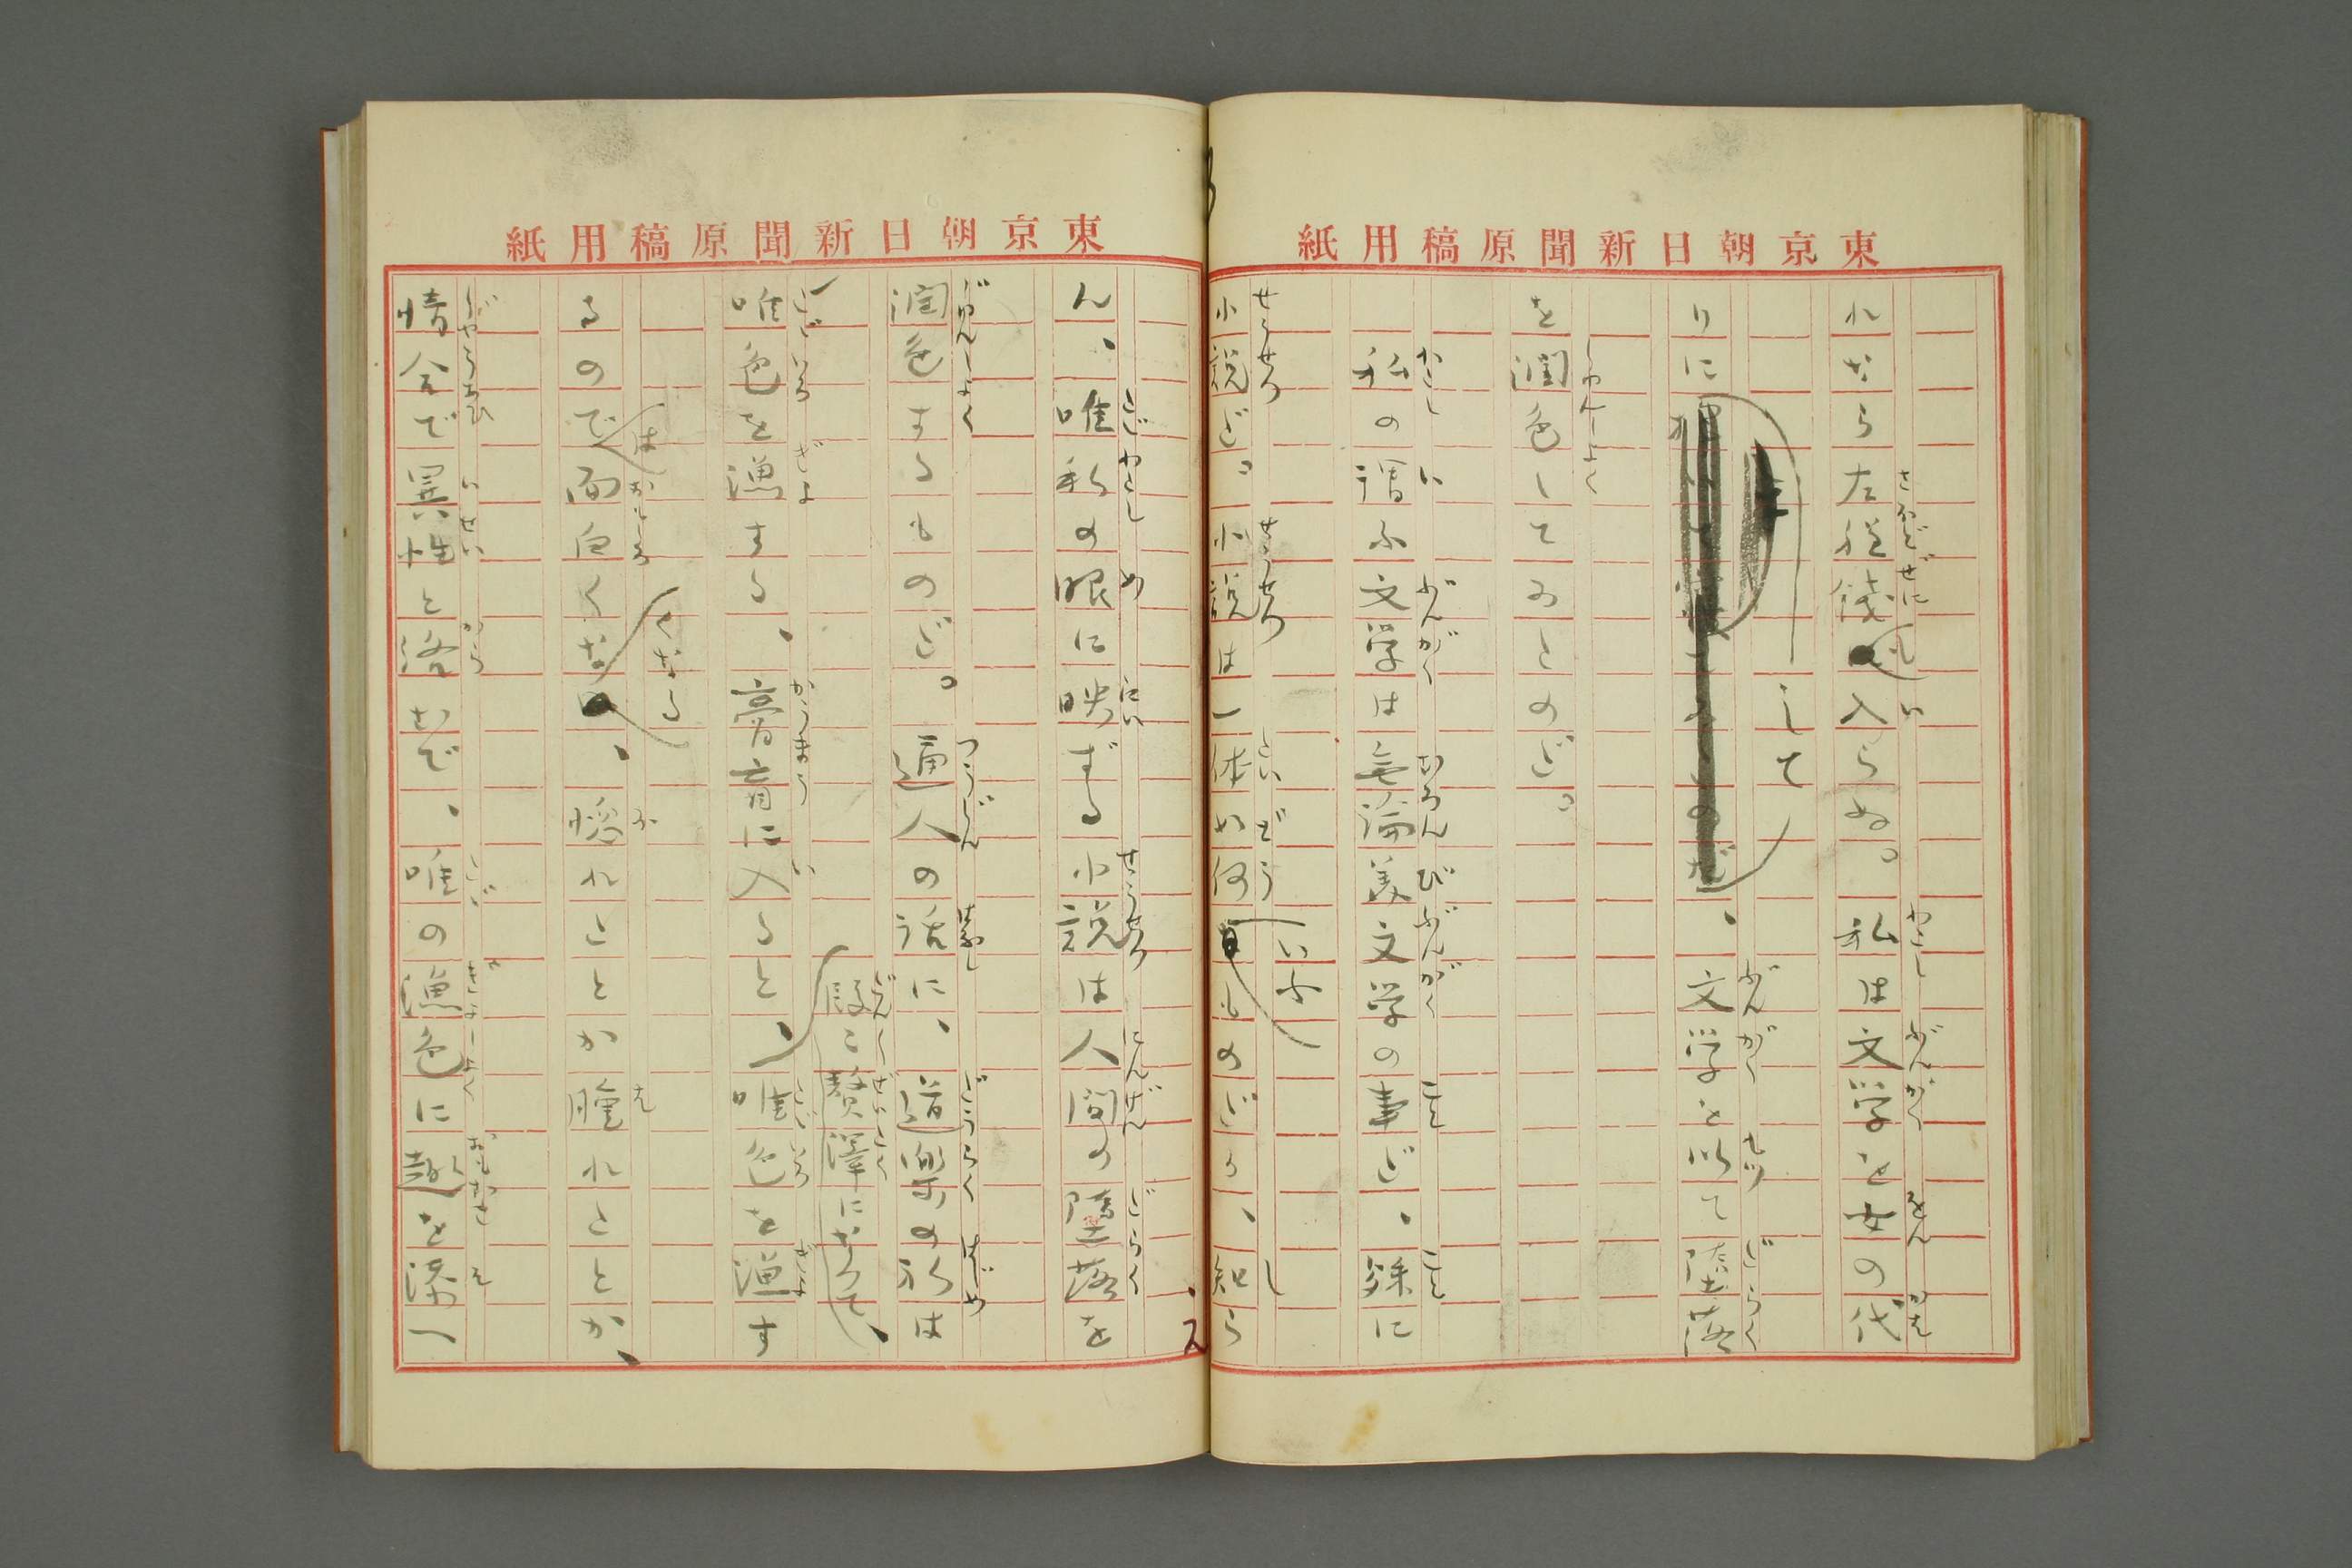 東京朝日新聞原稿用紙
れなら左程銭は入らぬ。私は文学を女の代
りにして、文学を以て堕落
を潤色してゐたのだ。
私の謂ふ文学は無論美文学の事だ、殊に
小説だ。小説は一体如何いふものだか、知ら
東京朝日新聞原稿用紙
ん、唯私の眼に映ずる小説は人間の堕落を
潤色するものだ。通人の話に、道楽の初は
唯色を漁する、膏肓に入ると、段々贅沢になつて、唯色を漁す
るのでは面白くなくなる、惚れたとか腫れたとか、
情合で異性と絡んで、唯の漁色に趣を添へ